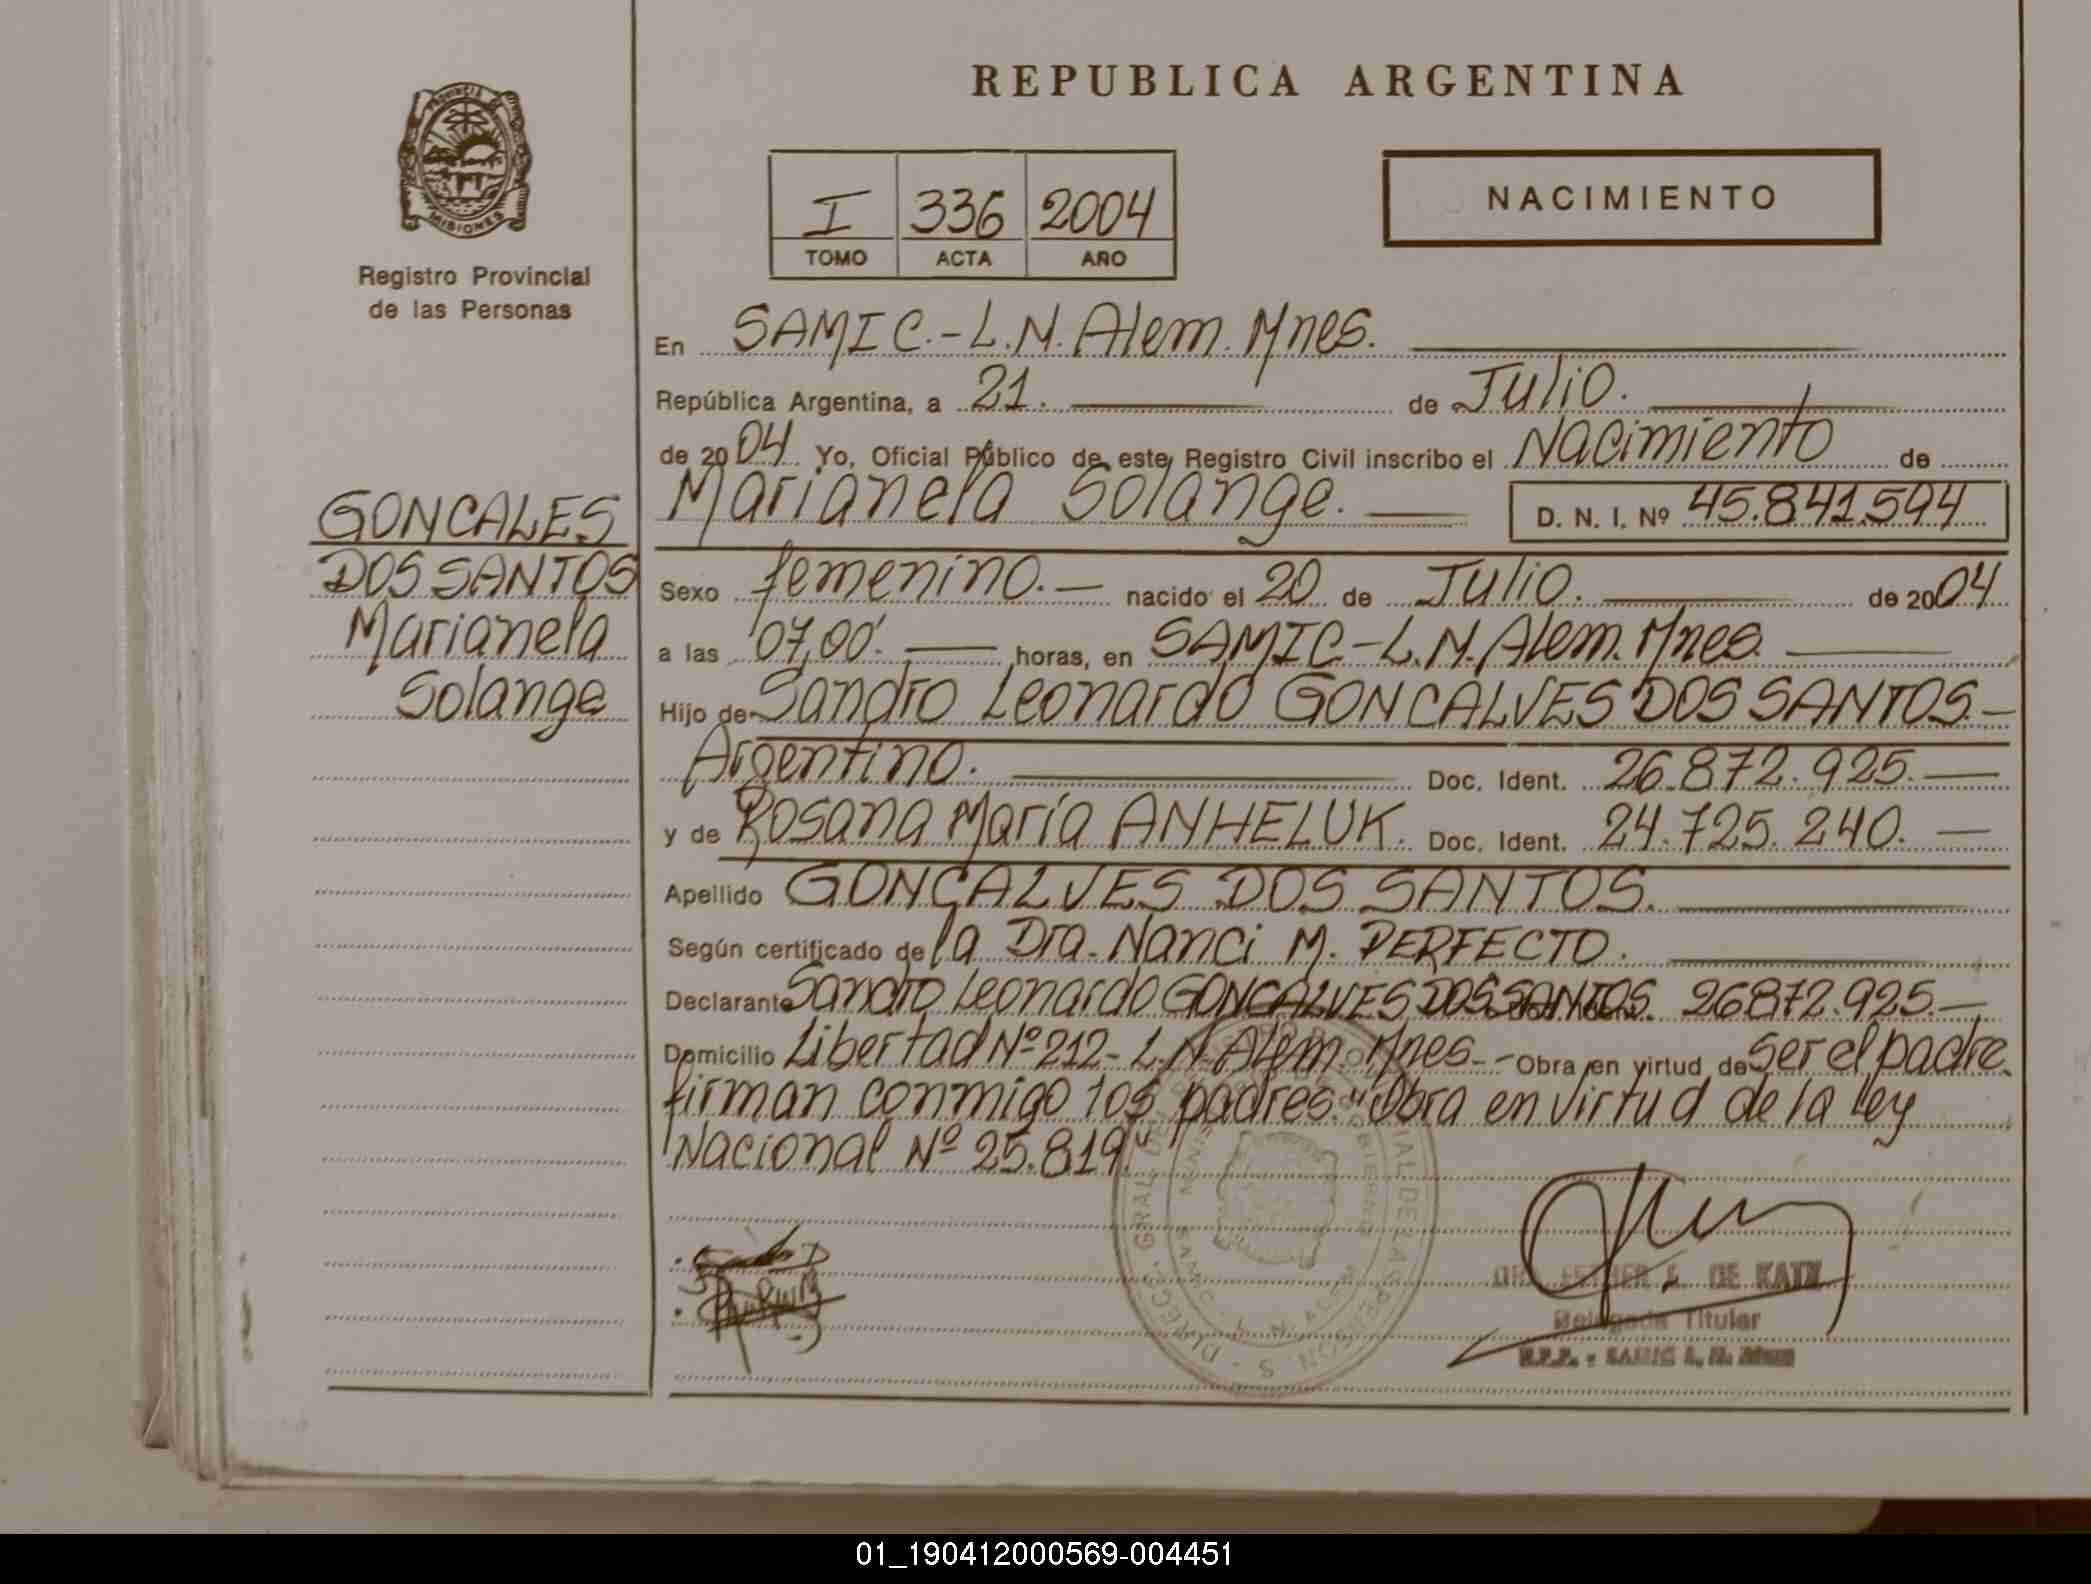 REPUBLICA ARGENTINA
PROVINCIA DE
MISIONES
Registro Provincial
de las Personas
I 336 2004
TOMO ACTA AÑO
NACIMIENTO
En SAMIC.-L.N.Alem.Mnes.
República Argentina, a 21. de Julio.
de 2004 Yo, Oficial Público de este Registro Civil inscribo el Nacimiento de
Marianela Solange. D. N. I. Nº 45.841.594
GONCALES
DOS SANTOS
Marianela
Solange
Sexo femenino.- nacido el 20 de Julio. de 2004
a las 07,00. horas, en SAMIC-L.N.Alem.Mnes.
Hijo de Sandro Leonardo GONCALVES DOS SANTOS.-
Argentino. Doc. Ident. 26.872.925.-
y de Rosana María ANHELUK. Doc. Ident. 24.725.240.-
Apellido GONÇALVES DOS SANTOS.
Según certificado de la Dra. Nanci M. PERFECTO.
Declarante Sandro Leonardo GONCALVES DOS SANTOS. 26872.925.-
Domicilio Libertad Nº 212- L.N.Alem. Mnes.- Obra en virtud de ser el padre.
firman conmigo los padres. "Obra en virtud de la ley
Nacional Nº 25.819."
ESTHER DE KATZ
Delegada Titular
01_190412000569-004451